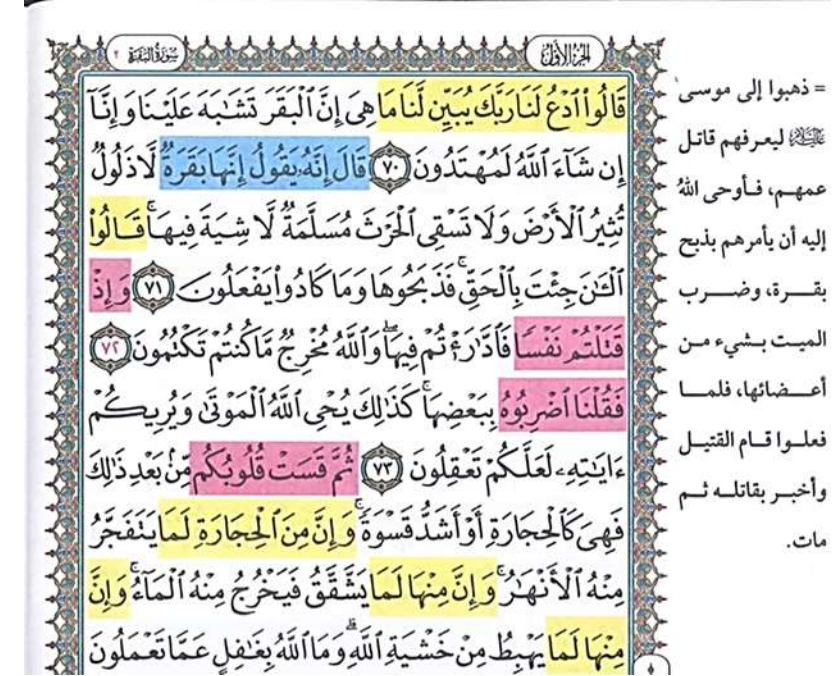 الجزء الأول
سورة البقرة ٢
قَالُوا۟ ٱدْعُ لَنَا رَبَّكَ يُبَيِّن لَّنَا مَا هِىَ إِنَّ ٱلْبَقَرَ تَشَـٰبَهَ عَلَيْنَا وَإِنَّآ
إِن شَآءَ ٱللَّهُ لَمُهْتَدُونَ ٧٠ قَالَ إِنَّهُۥ يَقُولُ إِنَّهَا بَقَرَةٌ لَّا ذَلُولٌ
تُثِيرُ ٱلْأَرْضَ وَلَا تَسْقِى ٱلْحَرْثَ مُسَلَّمَةٌ لَّا شِيَةَ فِيهَا ۚ قَالُوا۟
ٱلْـَٔـٰنَ جِئْتَ بِٱلْحَقِّ ۚ فَذَبَحُوهَا وَمَا كَادُوا۟ يَفْعَلُونَ ٧١ وَإِذْ
قَتَلْتُمْ نَفْسًا فَٱدَّٰرَْٰٔتُمْ فِيهَا ۖ وَٱللَّهُ مُخْرِجٌ مَّا كُنتُمْ تَكْتُمُونَ ٧٢
فَقُلْنَا ٱضْرِبُوهُ بِبَعْضِهَا ۚ كَذَٰلِكَ يُحْىِ ٱللَّهُ ٱلْمَوْتَىٰ وَيُرِيكُمْ
ءَايَـٰتِهِۦ لَعَلَّكُمْ تَعْقِلُونَ ٧٣ ثُمَّ قَسَتْ قُلُوبُكُم مِّنۢ بَعْدِ ذَٰلِكَ
فَهِىَ كَٱلْحِجَارَةِ أَوْ أَشَدُّ قَسْوَةً ۚ وَإِنَّ مِنَ ٱلْحِجَارَةِ لَمَا يَتَفَجَّرُ
مِنْهُ ٱلْأَنْهَـٰرُ ۚ وَإِنَّ مِنْهَا لَمَا يَشَّقَّقُ فَيَخْرُجُ مِنْهُ ٱلْمَآءُ ۚ وَإِنَّ
مِنْهَا لَمَا يَهْبِطُ مِنْ خَشْيَةِ ٱللَّهِ ۗ وَمَا ٱللَّهُ بِغَـٰفِلٍ عَمَّا تَعْمَلُونَ
= ذهبوا إلى موسى
عليه السلام ليعرفهم قاتل
عمهم، فأوحى اللهُ
إليه أن يأمرهم بذبح
بقرة، وضرب
الميت بشيء من
أعضائها، فلما
فعلوا قام القتيل
وأخبر بقاتله ثم
مات.